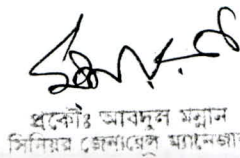 প্রকৌঃ আবদুল মন্নান
সিনিয়র জেনারেল ম্যানেজার